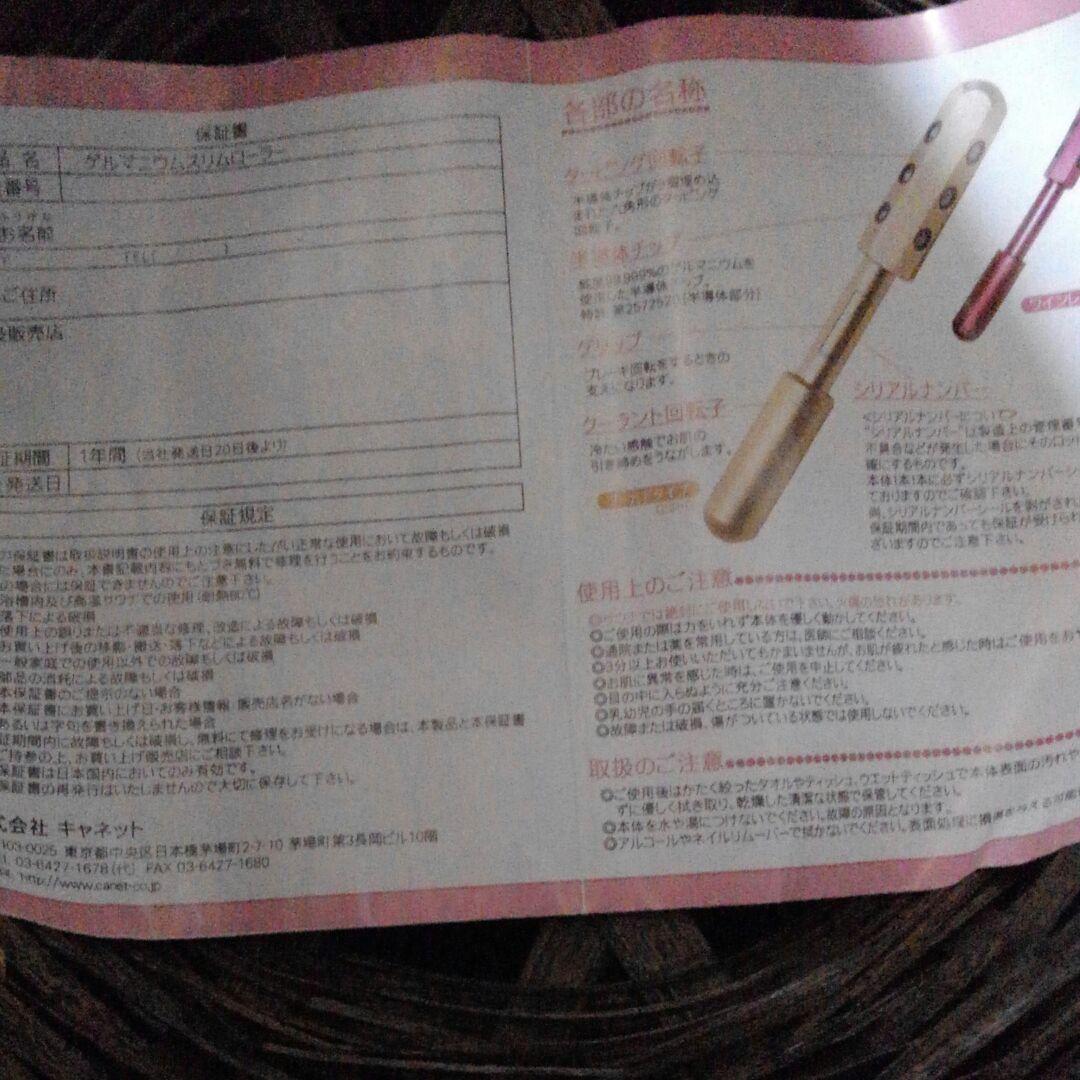 保証書
品 名 ゲルマニウムスリムローラー
番号
ふりがな
お名前
TEL( )
ご住所
販売店
証期間 1年間 (当社発送日20日後より)
発送日
保証規定
保証書は取扱説明書の使用上の注意にしたがい正常な使用において故障もしくは破損
た場合にのみ、本書記載内容にもとづき無料で修理を行うことをお約束するものです。
の場合には保証できませんのでご注意下さい。
浴槽内及び高温サウナでの使用(耐熱80℃)
落下による破損
使用上の誤りまたは不適当な修理、改造による故障もしくは破損
お買い上げ後の移動・搬送・落下などによる故障もしくは破損
一般家庭での使用以外での故障もしくは破損
部品の消耗による故障もしくは破損
本保証書のご提示のない場合
本保証書にお買い上げ日・お客様情報・販売店名がない場合
あるいは字句を書き換えられた場合
証期間内に故障もしくは破損し、無料にて修理をお受けになる場合は、本製品と本保証書
ご持参の上、お買い上げ販売店にご相談下さい。
保証書は日本国内においてのみ有効です。
保証書の再発行はいたしませんので大切に保存して下さい。
式会社 キャネット
103-0025 東京都中央区日本橋茅場町2-7-10 茅場町第3長岡ビル10階
03-6427-1678(代) FAX 03-6427-1680
http://www.canet-co.jp
各部の名称
タッピング回転子
半導体チップが
八角形のタッピング
回転子。
半導体チップ
純度99.999%のゲルマニウムを
使用した半導体チップ。
特許 第2572520(半導体部分)
グリップ
ブレーキ回転をするときの
支えになります。
クーラント回転子
冷たい感触でお肌の
引き締めをうながします。
シリアルナンバー
<シリアルナンバーについて>
"シリアルナンバー"は製造上の管理番
不具合などが発生した場合にそのロッ
確にするものです。
本体1本1本に必ずシリアルナンバーシ
ておりますのでご確認下さい。
尚、シリアルナンバーシールを剥がされ
保証期間内であっても保証が受けられ
ざいますのでご注意下さい。
使用上のご注意
◎サウナでは絶対にご使用しないで下さい。火傷の恐れがあります。
◎ご使用の際は力をいれず本体を優しく動かしてください。
◎通院または薬を常用している方は、医師にご相談ください。
◎3分以上お使いいただいてもかまいませんが、お肌が疲れたと感じた時はご使用をお
◎お肌に異常を感じた時は、ご使用を中止してください。
◎目の中に入らぬように充分ご注意ください。
◎乳幼児の手の届くところに置かないでください。
◎故障または破損、傷がついている状態では使用しないでください。
取扱のご注意
◎ご使用後はかたく絞ったタオルやティッシュ、ウエットティッシュで本体表面の汚れや
ずに優しく拭き取り、乾燥した清潔な状態で保管してください。
◎本体を水や湯につけないでください。故障の原因となります。
◎アルコールやネイルリムーバーで拭かないでください。表面処理に損傷を与える可能